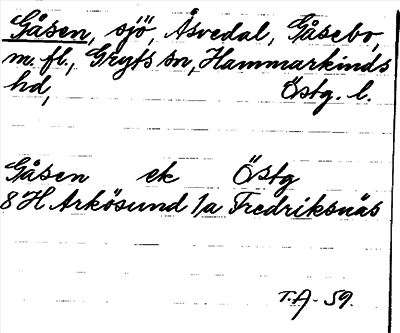 Gåsen, sjö, Åsvedal, Gåsebo,
m. fl., Gryts sn, Hammarkinds
hd, Östg. l.
Gåsen ek Östg
8 H Arkösund 1/a Fredriksnäs
T.A - 59.